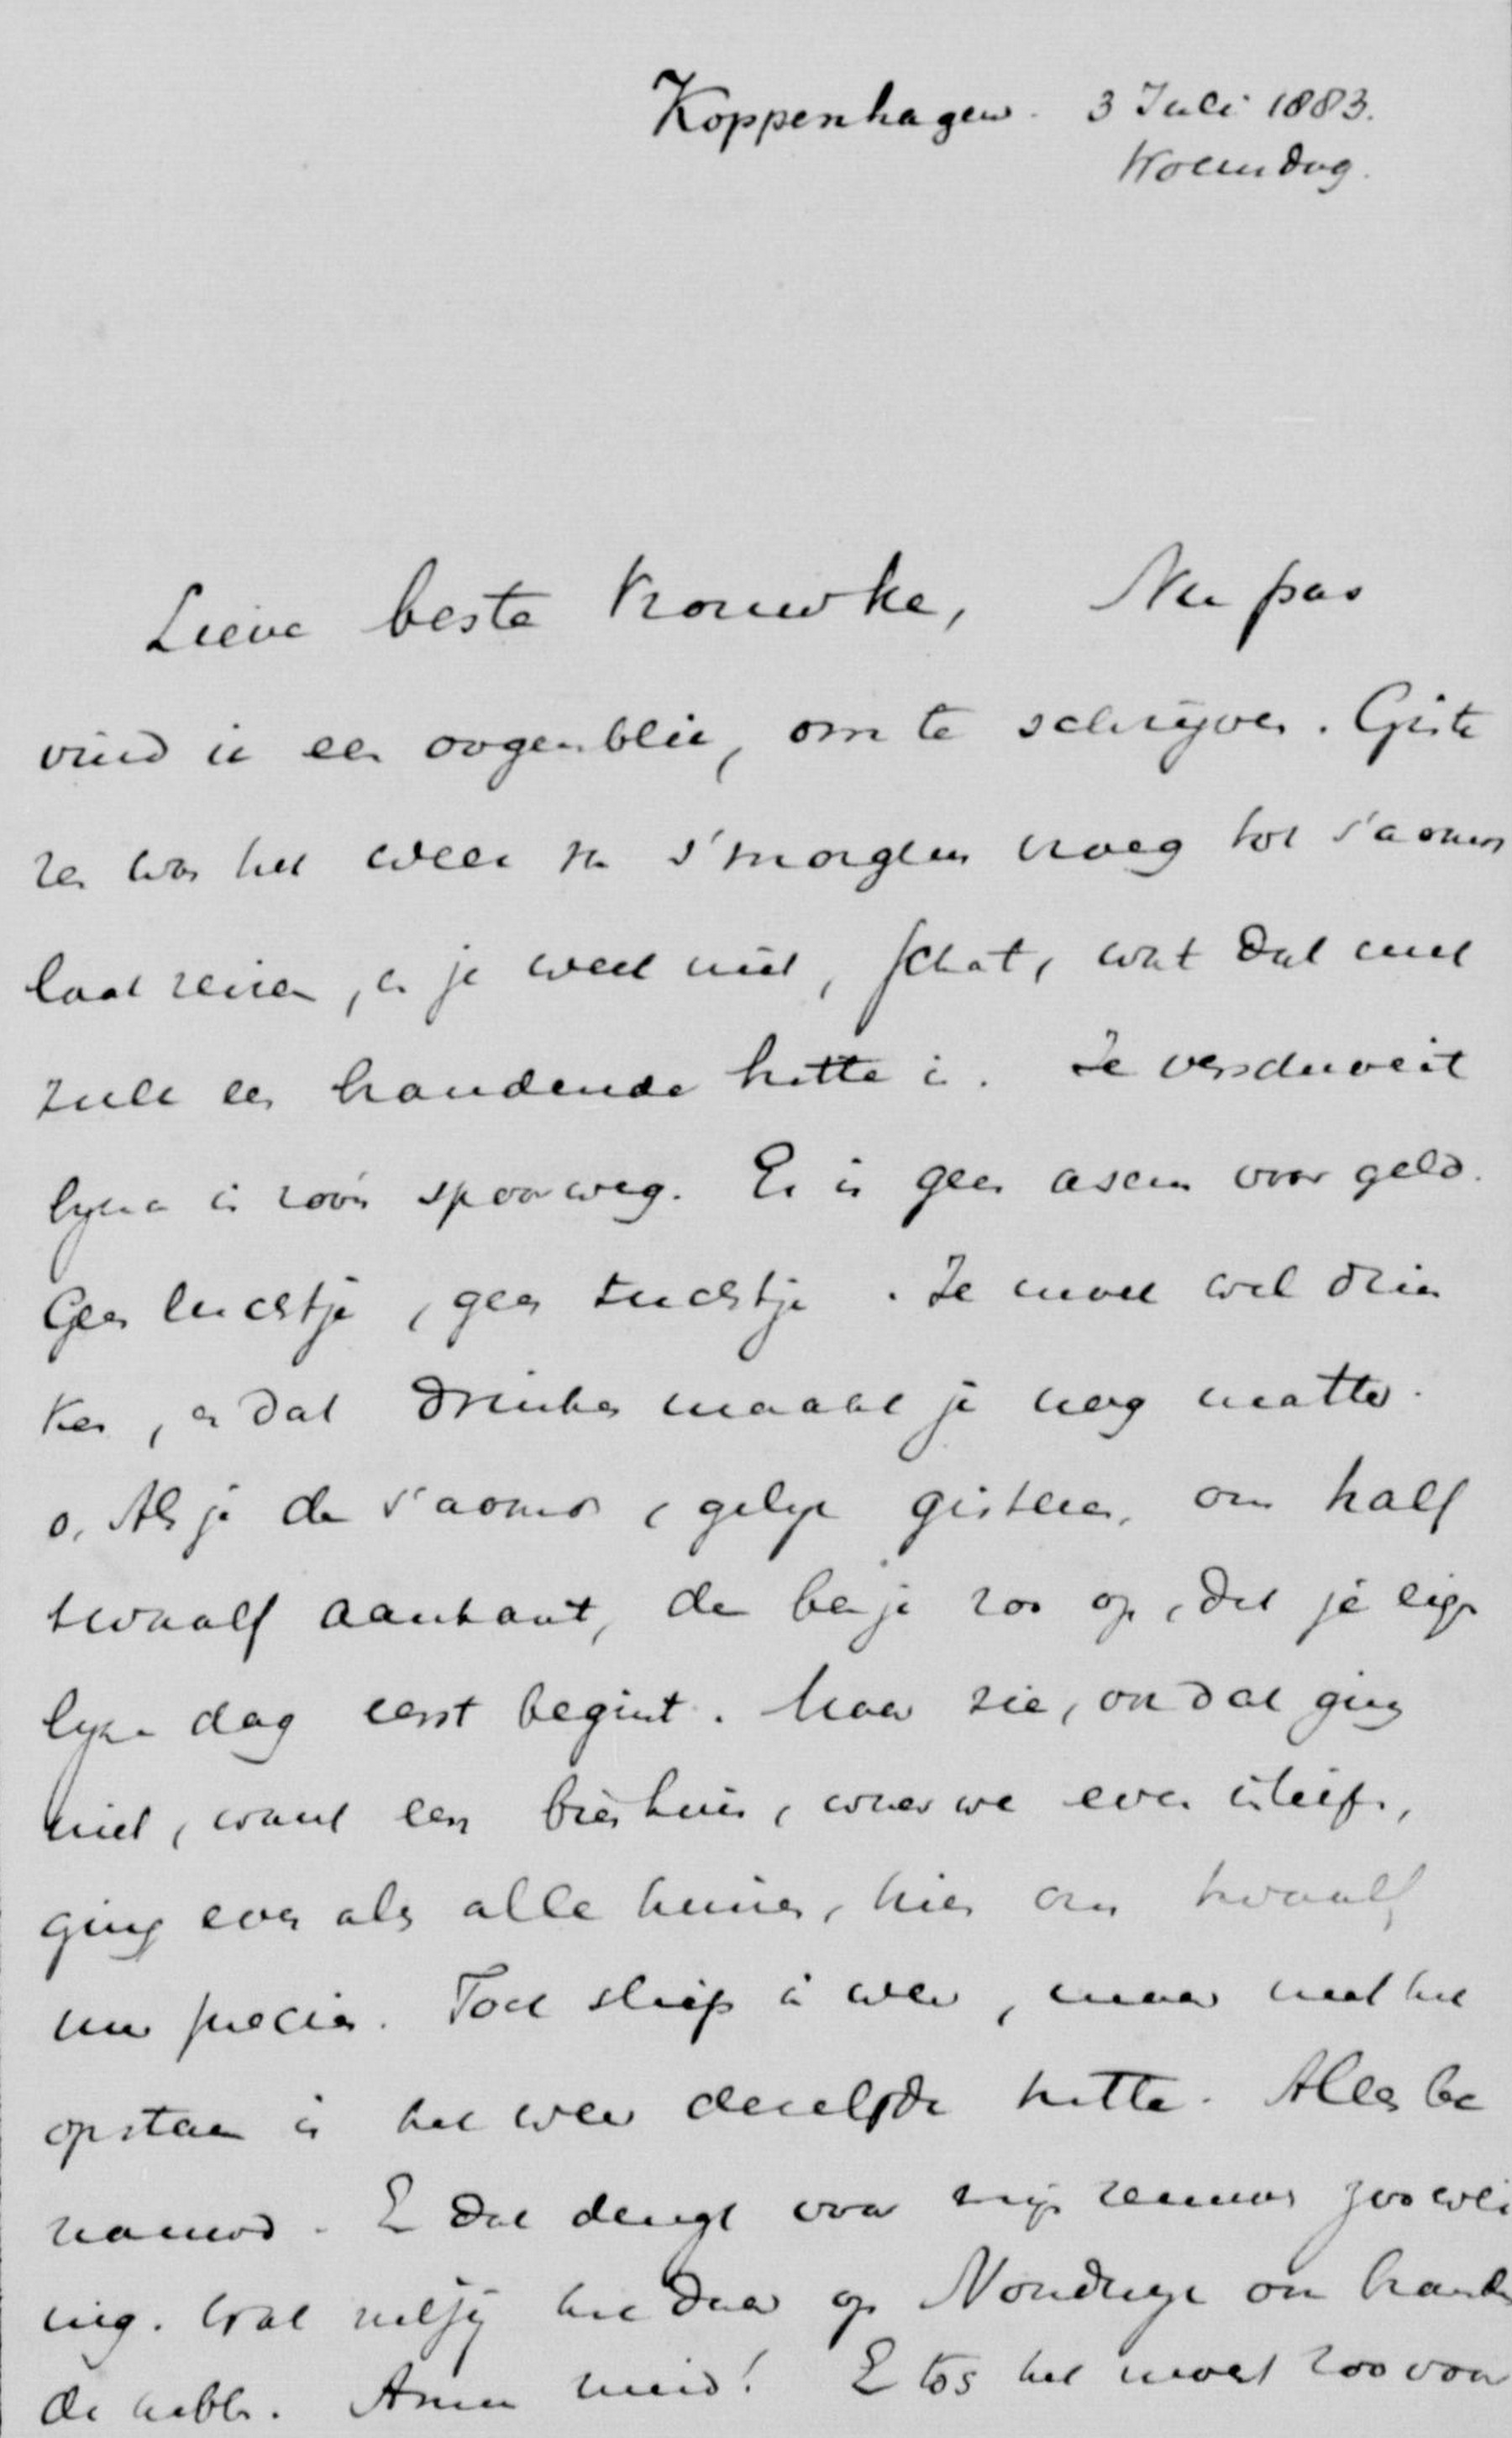 Koppenhagen. 3 Juli 1883.
Woensdag.
Lieve beste Vrouwke, Nu pas
vind ik een oogenblik, om te schrijven. Giste
ren was het weer van s'morgens vroeg tot s'avonds
laat reizen, en je weet niet, schat, wat dat met
zulk een brandende hitte is. Je verduveit
byna in zoo'n spoorweg. Er is geen asem voor geld.
Geen luchtje, geen tuchtje. Je moet wel drin
ken, en dat drinken maakt je nog matter.
o, Als je dan s'avonds, gelyk gisteren, om half
twaalf aankomt, dan ben je zoo op, dat je eigen
lyke dag eerst begint. Maar zie, ook dat ging
niet, want een bierhuis, waar we even inliepen,
ging even als alle huizen, hier om twaalf
uur precies. Toch sliep ik wel, maar met het
opstaan is het weer dezelfde hitte. Alles be
nauwd. En dat deugt voor myn zenuwen zoo wei
nig. Wat zul jy het daar op Nondruge om
de hebben. Arme meid! En tos het moet zoo voor